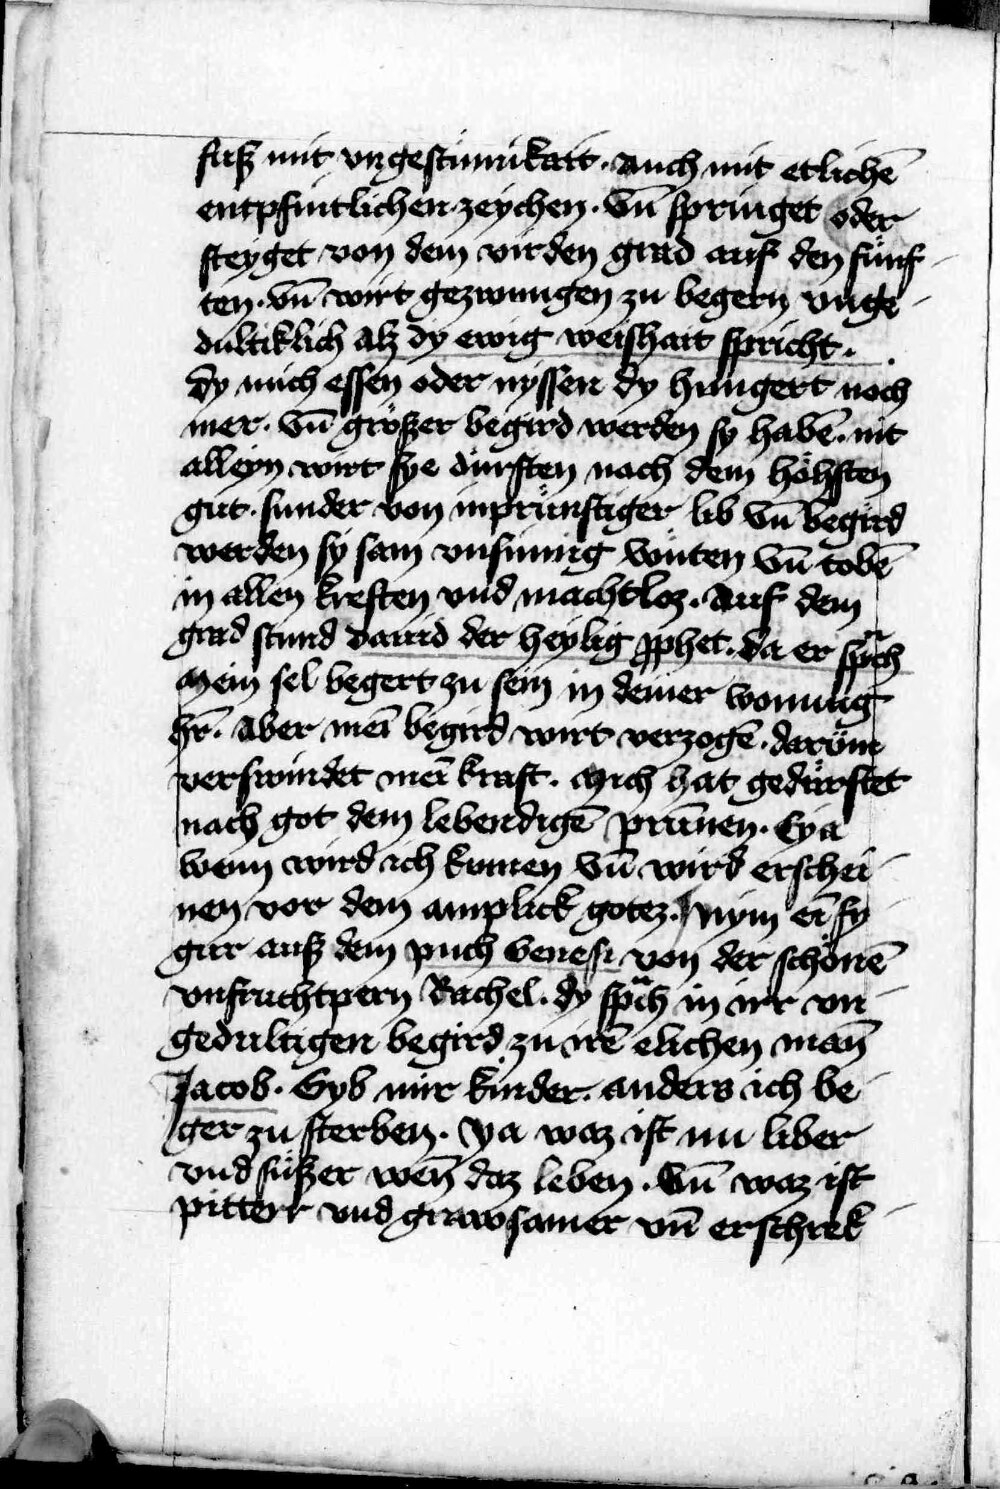 fuß mit vngestümikait. auch mit etlichē
entpfintlichen zeychen. Vn̄ springet oder
steyget von dem virden grad auf den fünf-
ten. vn̄ wirt gezwungen zu begern vnge-
dultiklich Alz dy ewig weishait spricht.
dy mich essen oder nyssen dy hungert noch
mer. Vn̄ größer begird werden sy habē. nit
alleyn wirt sye dürsten nach dem höhsten
gut. sunder von inprünstiger lib Vn̄ begird
werden sy sam vnsinnig wüten Vn̄ tobē
in allen kreften vnd machtloz. Auf dem
grad stund dauid der heylig ꝓphet. da er spͣch
Mein sel begert zu sein in deiner wonung
hr̄. Aber mei̅ begird wirt verzogē. darüm
verswindet mei̅ kraft. Mich hat gedürstet
nach got dem lebendigē prūnen. Eya
wenn wird ich kumen Vn̄ wird erschei-
nen vor dem anplick gotez. Nym ei̅ fy-
gur auß dem puch Genesi von der schönē
vnfruchtpern Rachel. dy spͣch in irr vn-
gedultigen begird zu irē elichen man̄
Jacob. Gyb mir kinder. anders ich be-
ger zu sterben. Ya waz ist nu liber
vnd süßer wen̄ daz leben. Vn̄ waz ist
pitterr vnd grawsamer vn̄ erschrek-